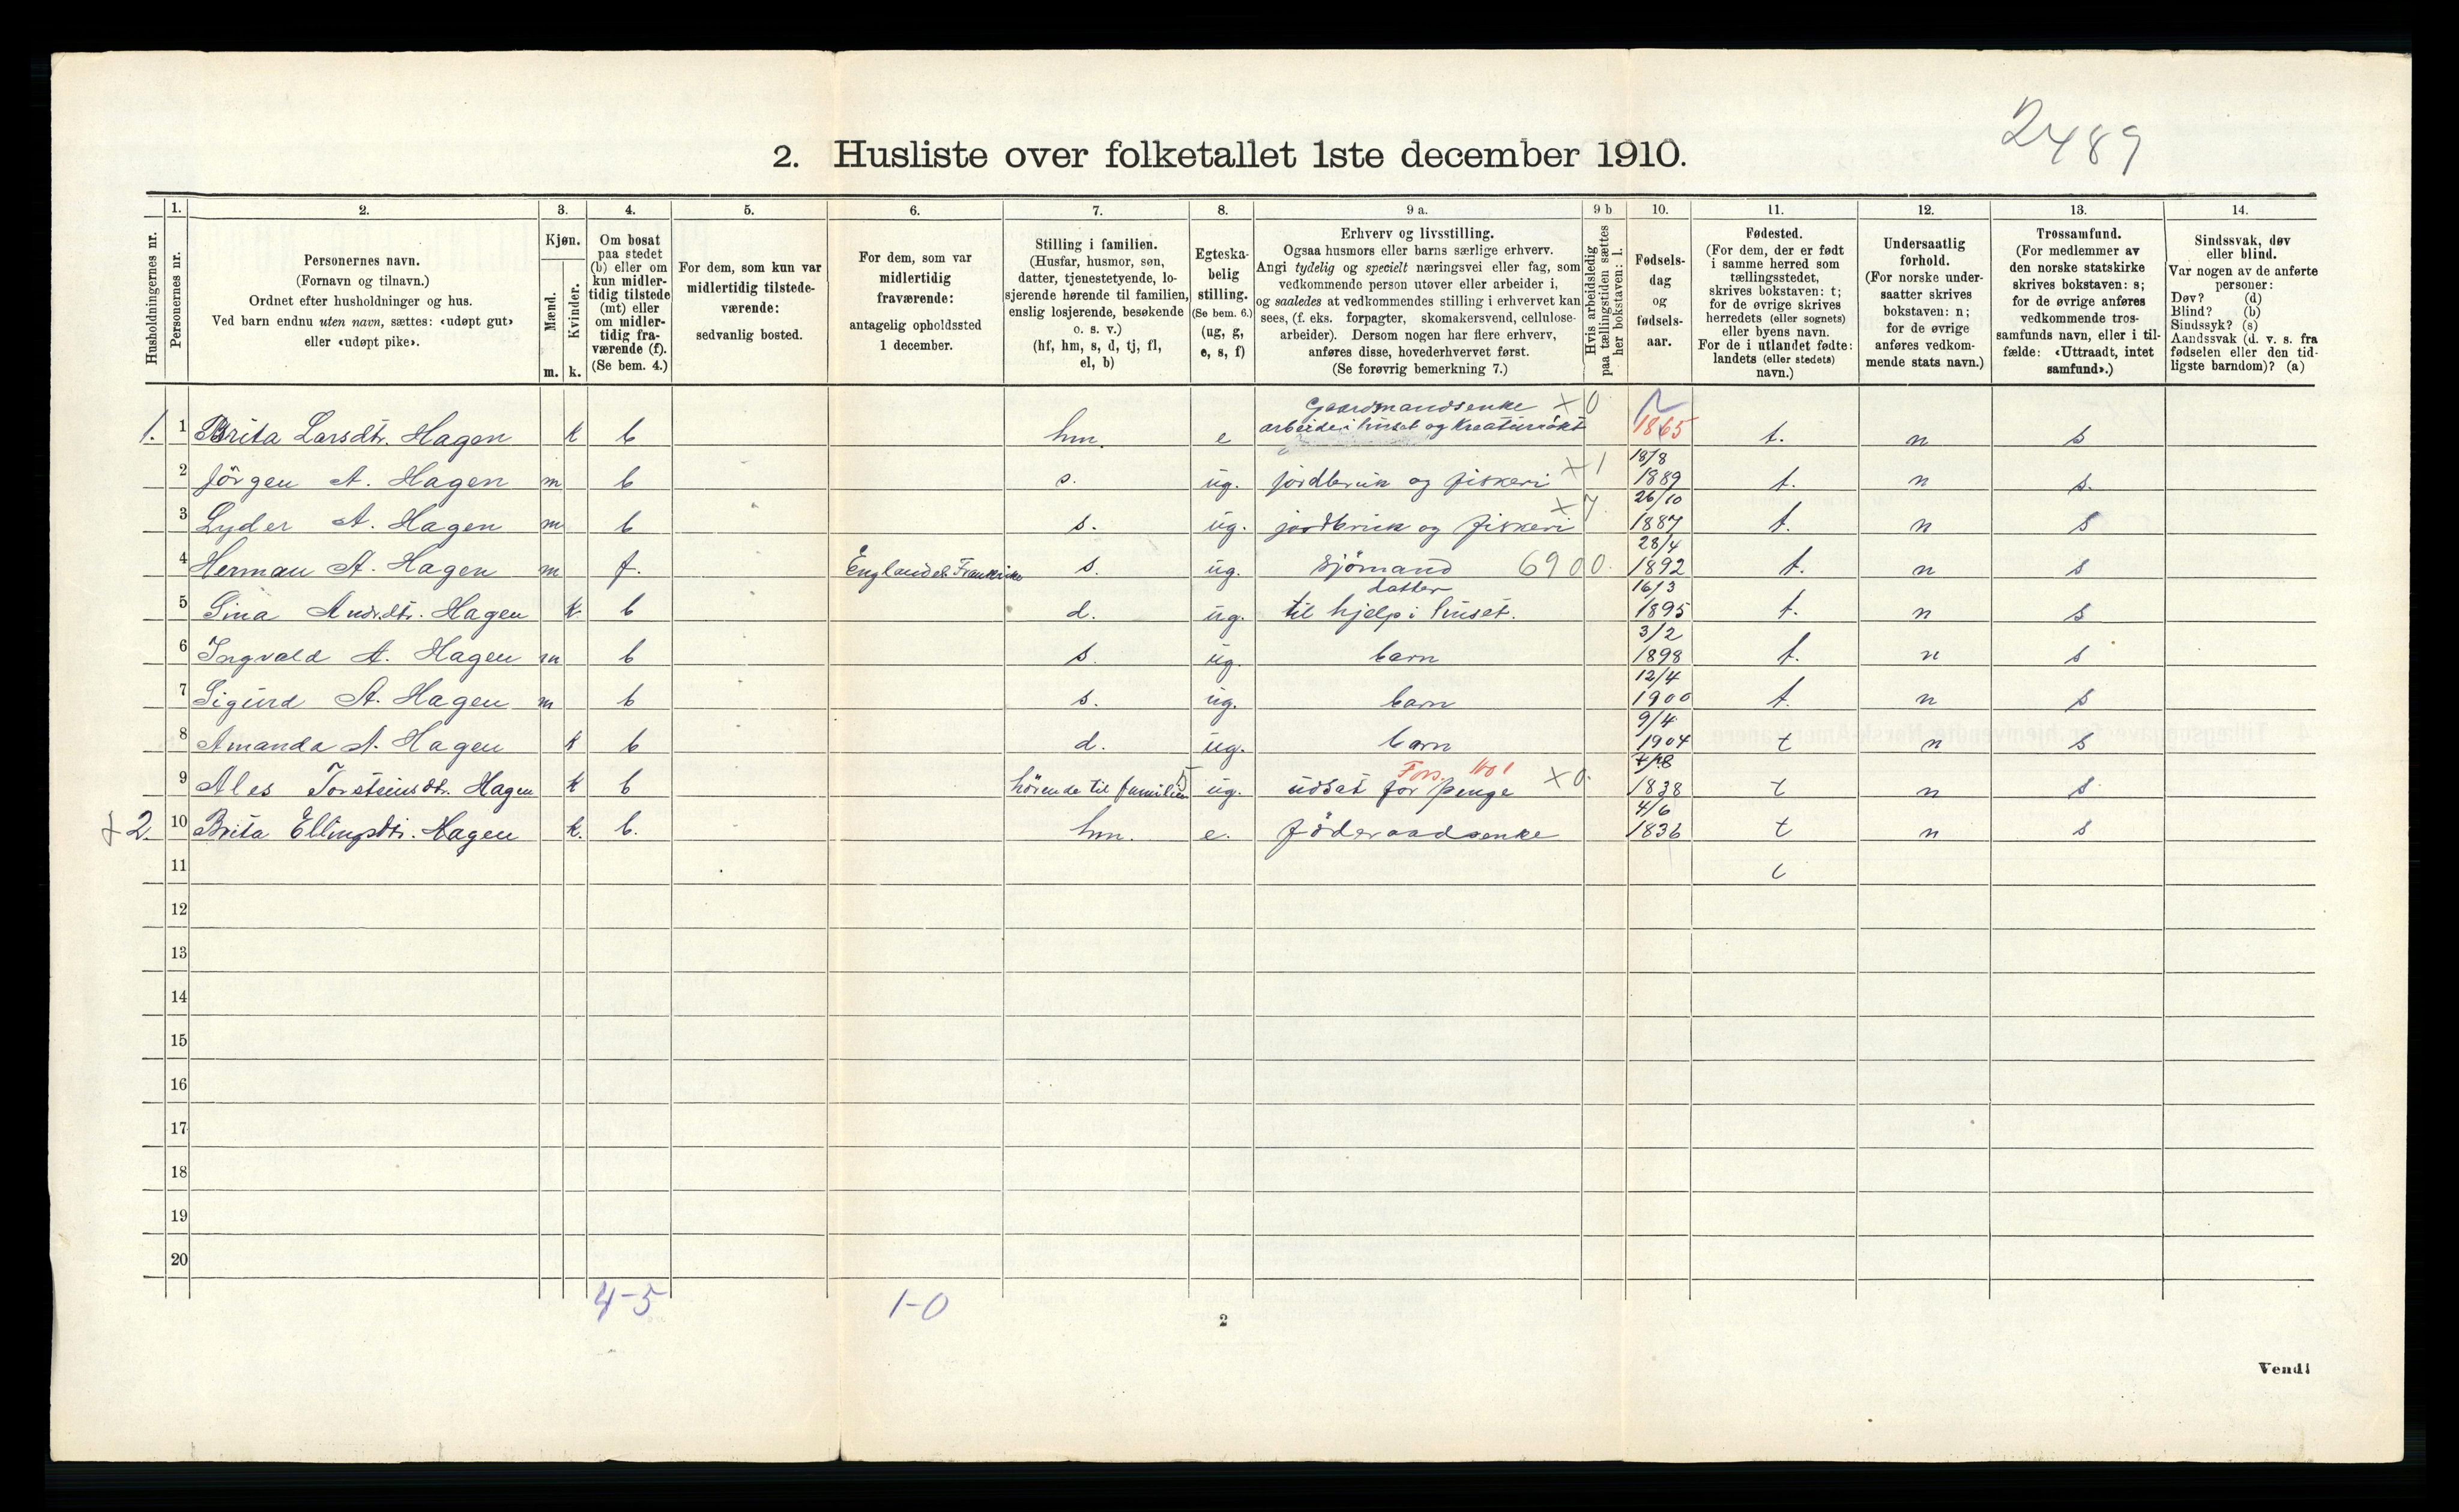 2489
2. Husliste over folketallet 1ste december 1910.
Husholdningernes nr.
1.
Personernes nr.
2.
Personernes navn.
(Fornavn og tilnavn.)
Ordnet efter husholdninger og hus.
Ved barn endnu uten navn, sættes: «udøpt gut»
eller «udøpt pike».
3.
Kjøn.
Mænd.
Kvinder.
m. k.
4.
Om bosat
paa stedet
(b) eller om
kun midler-
tidig tilstede
(mt) eller
om midler-
tidig fra-
værende (f).
(Se bem. 4.)
5.
For dem, som kun var
midlertidig tilstede-
værende:
sedvanlig bosted.
6.
For dem, som var
midlertidig
fraværende:
antagelig opholdssted
1 december.
7.
Stilling i familien.
(Husfar, husmor, søn,
datter, tjenestetyende, lo-
sjerende hørende til familien,
enslig losjerende, besøkende
o. s. v.)
(hf, hm, s, d, tj, fl,
el, b)
8.
Egteska-
belig
stilling.
(Se bem. 6.)
(ug, g,
e, s, f)
9 a.
Erhverv og livsstilling.
Ogsaa husmors eller barns særlige erhverv.
Angi tydelig og specielt næringsvei eller fag, som
vedkommende person utøver eller arbeider i,
og saaledes at vedkommendes stilling i erhvervet kan
sees, (f. eks. forpagter, skomakersvend, cellulose-
arbeider). Dersom nogen har flere erhverv,
anføres disse, hovederhvervet først.
(Se forøvrig bemerkning 7.)
9 b
Hvis arbeidsledig
paa tællingstiden sættes
her bokstaven: l.
10.
Fødsels-
dag
og
fødsels-
aar.
11.
Fødested.
(For dem, der er født
i samme herred som
tællingsstedet,
skrives bokstaven: t;
for de øvrige skrives
herredets (eller sognets)
eller byens navn.
For de i utlandet fødte:
landets (eller stedets)
navn.)
12.
Undersaatlig
forhold.
(For norske under-
saatter skrives
bokstaven: n;
for de øvrige
anføres vedkom-
mende stats navn.)
13.
Trossamfund.
(For medlemmer av
den norske statskirke
skrives bokstaven: s;
for de øvrige anføres
vedkommende tros-
samfunds navn, eller i til-
fælde: «Uttraadt, intet
samfund».)
14.
Sindssvak, døv
eller blind.
Var nogen av de anførte
personer:
Døv? (d)
Blind? (b)
Sindssyk? (s)
Aandssvak (d. v. s. fra
fødselen eller den tid-
ligste barndom)? (a)
Gaardmandsenke X 0
1. 1 Brita Larsdtr. Hagen k b hm. e arbeide i huset og Kreaturrökt 1865 t. n s
18/8
2 Jörgen A. Hagen m b s. ug. jordbruk og fiskeri X 1 1889 t. n s.
26/10
3 Lyder A. Hagen m b s. ug. jordbruk og fiskeri X 7 1887 t. n s
28/4
4 Herman A. Hagen m f. England el. Frankrike s. ug. sjömand 6900. 1892 t. n s
datter 16/3
5 Sina Andr.dtr. Hagen k. b d. ug. til hjelp i huset. 1895 t. n s
3/2
6 Ingvald A. Hagen m b s. ug. barn 1898 t. n s
12/4
7 Sigurd A. Hagen m b s. ug. barn 1900 t. n s
9/4
8 Amanda A. Hagen k b d. ug. barn 1904 t n s
Fors.
9 Ales Torsteinsdtr. Hagen k b hörende til familien 5 ug. udsat for penge X 0. 1838 t n s
4/6
+ 2. 10 Brita Ellingsdtr. Hagen k. b. hm. e. föderaadsenke 1836 t n s
11
12
13
14
15
16
17
18
19
20
4-5 1-0
2
Vend!